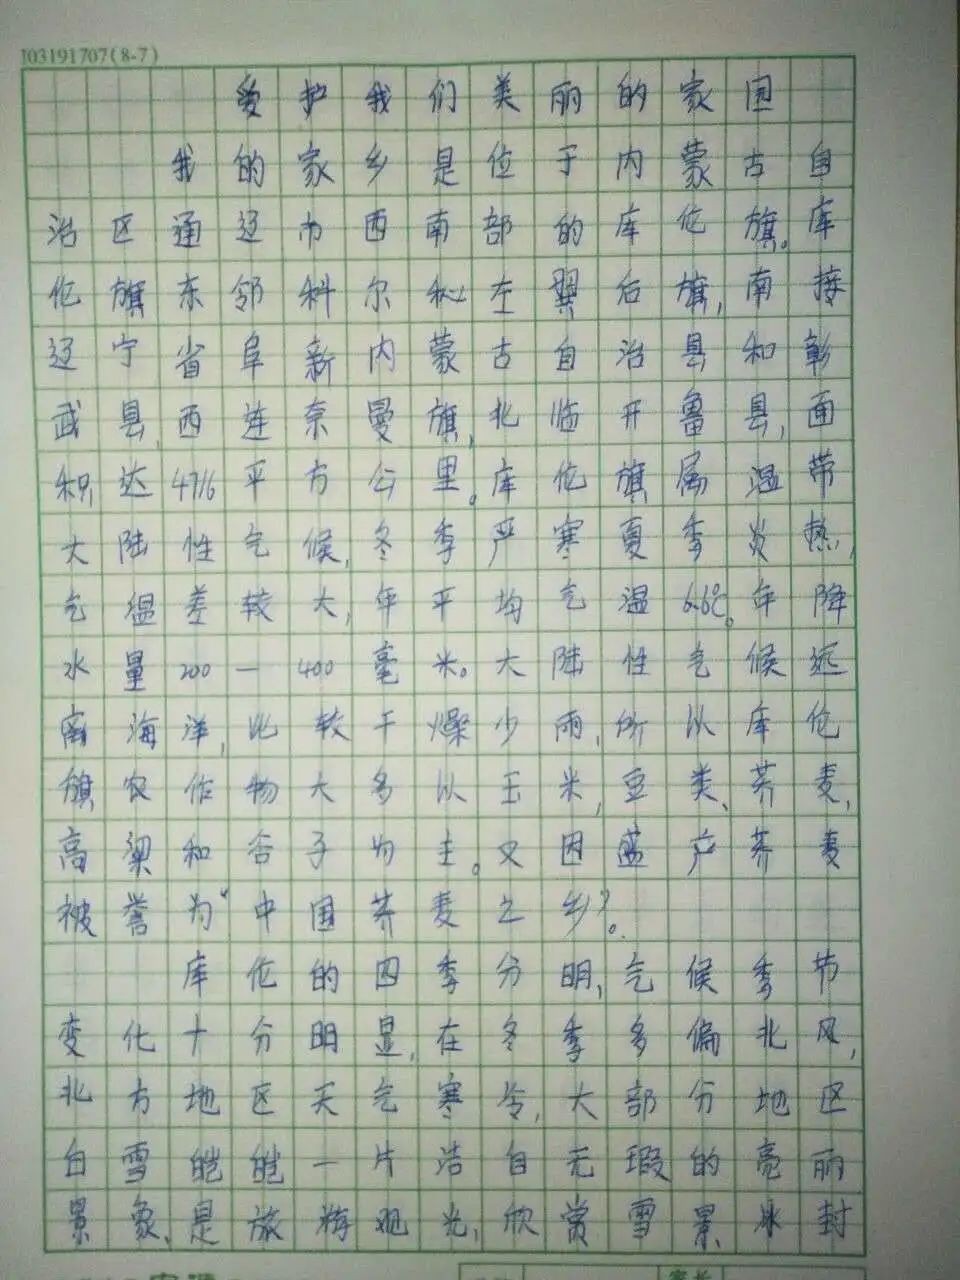 J03191707(8-7)
爱护我们美丽的家园
我的家乡是位于内蒙古自
治区通辽市西南部的库伦旗。库
伦旗东邻科尔沁左翼后旗,南接
辽宁省阜新内蒙古自治县和彰
武县,西连奈曼旗,北临开鲁县,面
积达4716平方公里。库伦旗属温带
大陆性气候,冬季严寒夏季炎热,
气温差较大,年平均气温6.6℃。年降
水量200一400毫米。大陆性气候远
离海洋,比较干燥少雨,所以库伦
旗农作物大多以玉米,豆类、荞麦,
高粱和谷子为主。又因盛产荞麦
被誉为“中国荞麦之乡”。
库伦的四季分明,气候季节
变化十分明显,在冬季多偏北风,
北方地区天气寒冷,大部分地区
白雪皑皑一片洁白无瑕的亮丽
景象,是旅游观光,欣赏雪景、冰封